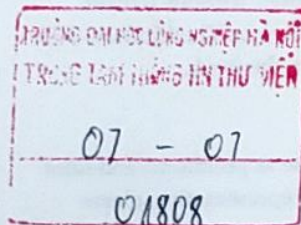 TRƯỜNG ĐẠI HỌC CÔNG NGHIỆP HÀ NỘI
TRUNG TÂM THÔNG TIN THƯ VIỆN
07 - 07
01808